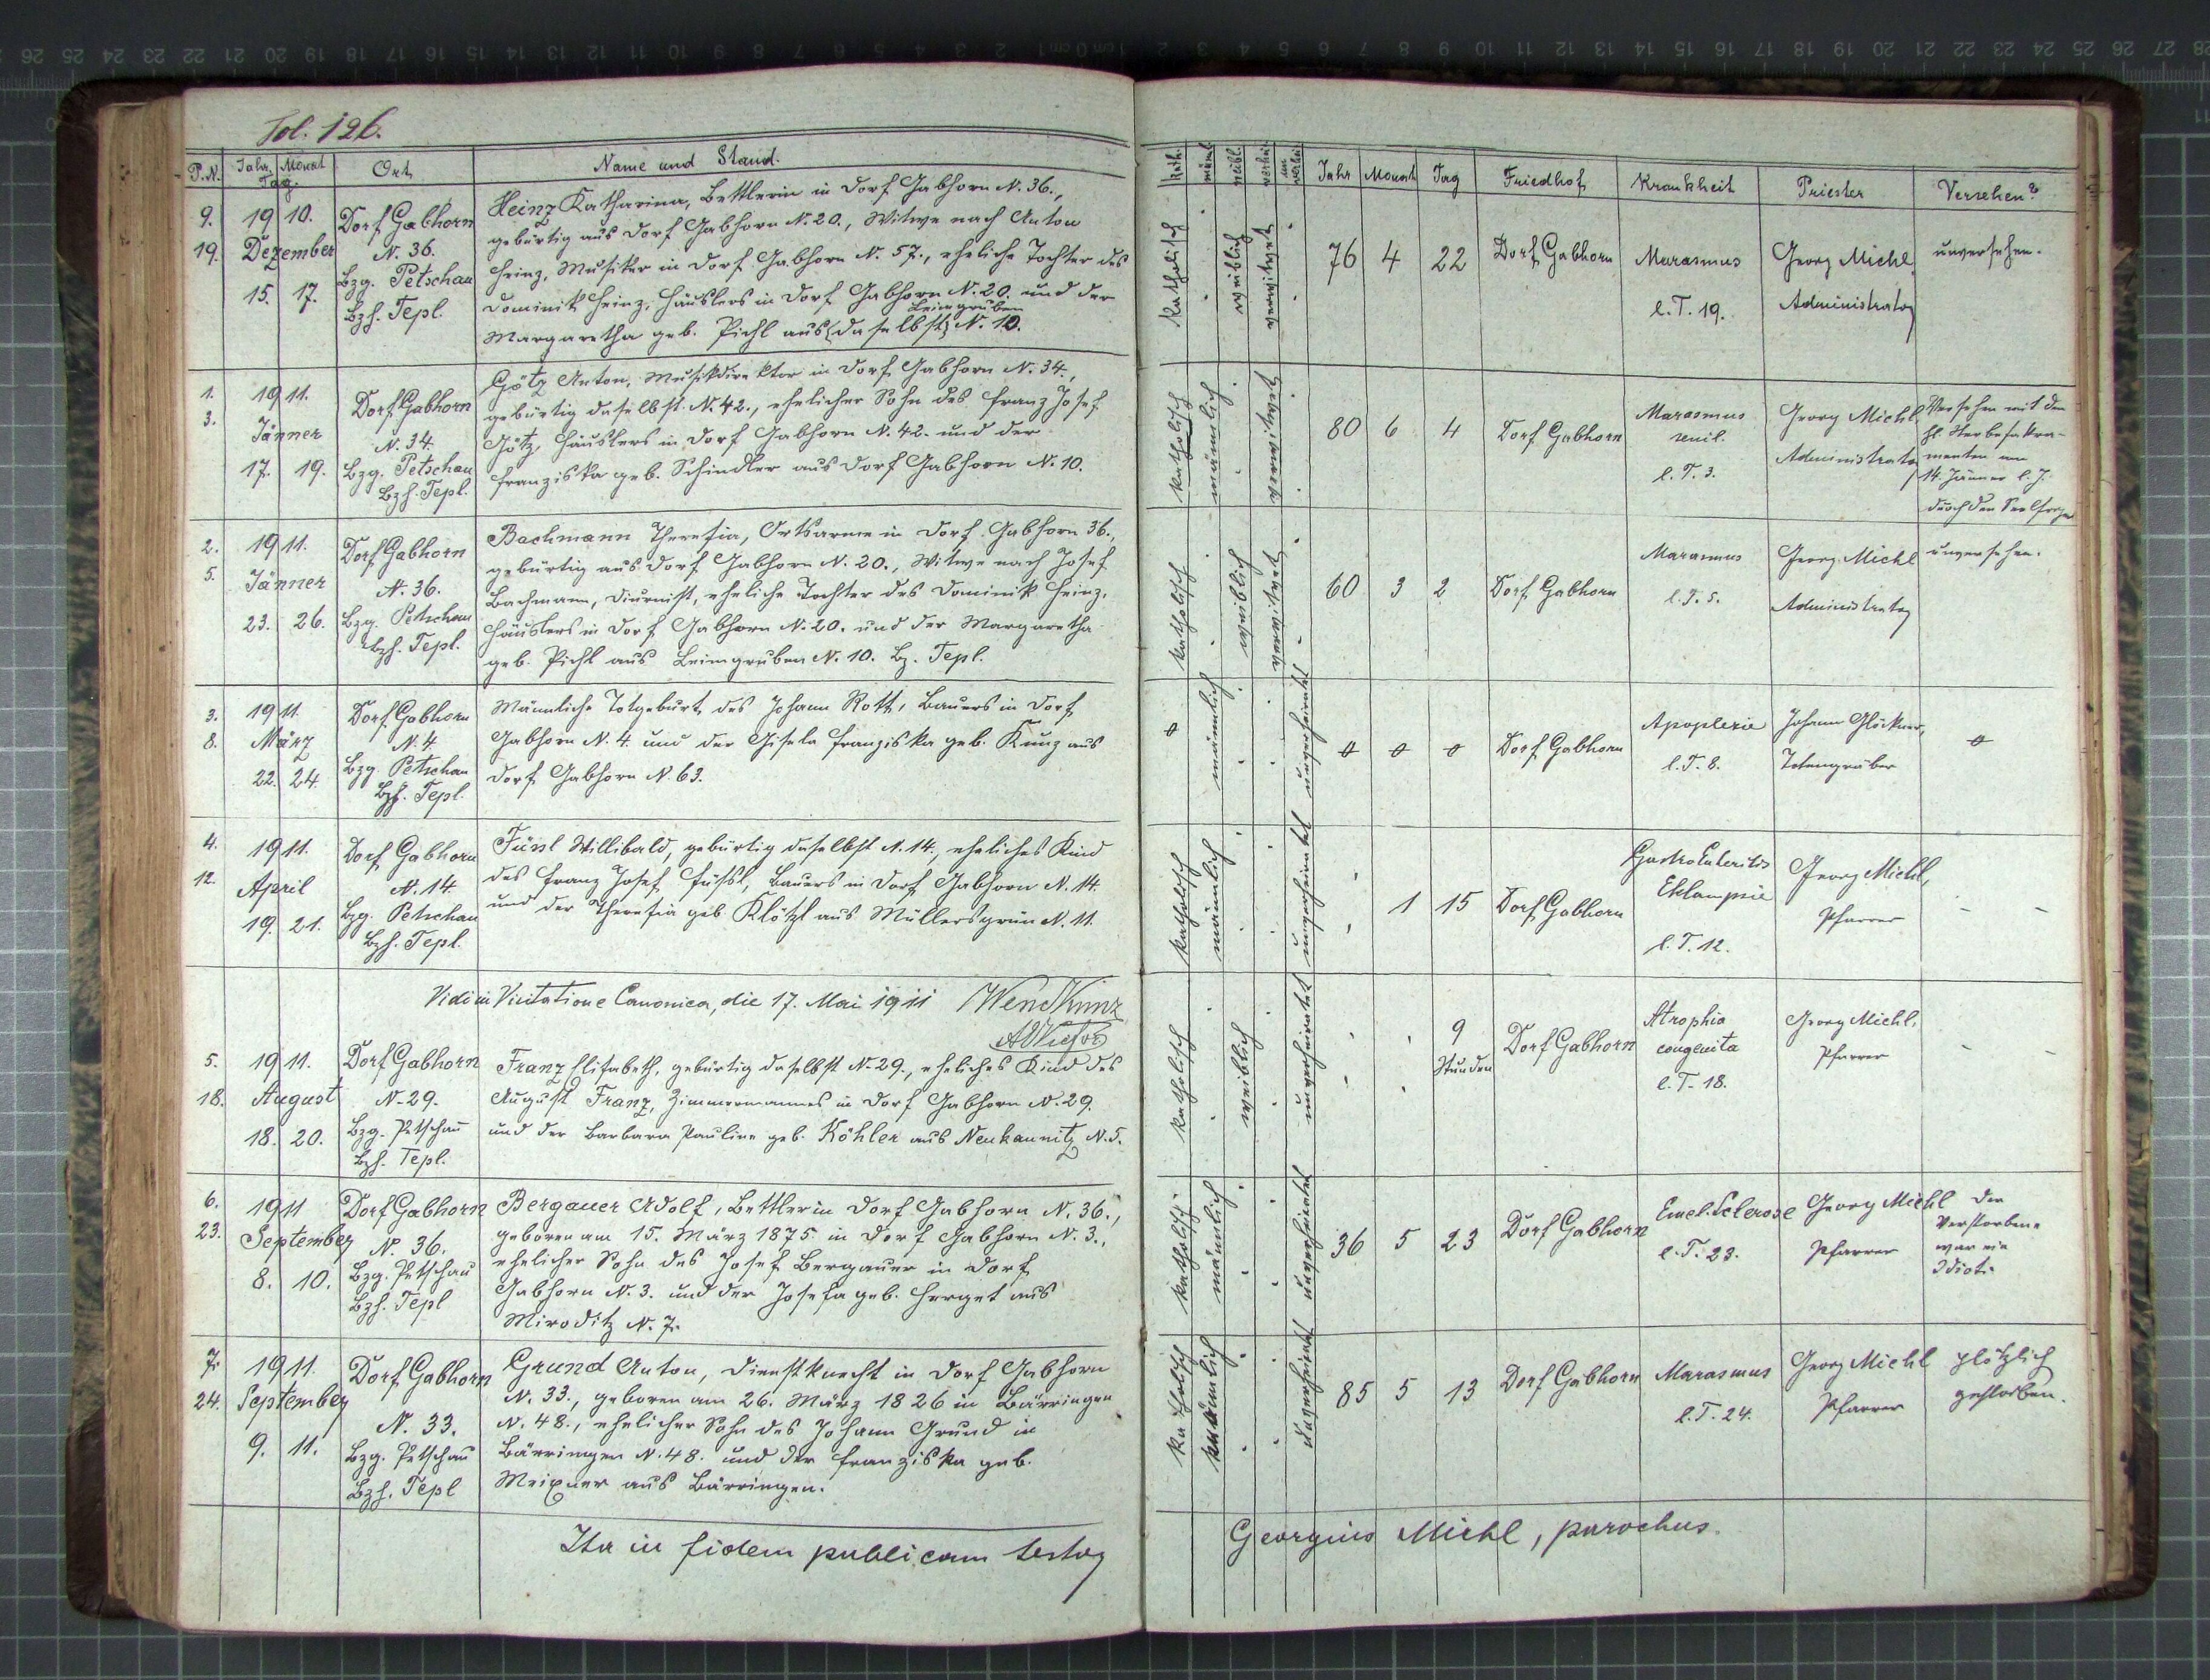 Fol. 126.
P.N. Jahr, Monat Tag. Ort Name und Stand.
9. 1910. Dorf Gabhorn
19. Dezember N. 36.
15. 17. Bzg. Petschau
Bzh. Tepl.
Heinz Katharina, Bettlerin in Dorf Gabhorn N. 36.,
gebürtig aus Dorf Gabhorn N. 20., Witwe nach Anton
Heinz, Musiker in Dorf Gabhorn N. 57., eheliche Tochter des
Dominik Heinz, Häuslers in Dorf Gabhorn N. 20. und der
Leimgruben
Margaretha geb. Pichl aus (daselbst) N. 10.
1. 1911. Dorf Gabhorn
3. Jänner N. 34.
17. 19. Bzg. Petschau
Bzh. Tepl.
Götz Anton, Musikdirektor in Dorf Gabhorn N. 34.,
gebürtig daselbst N. 42., ehelicher Sohn des Franz Josef
Götz, Häuslers in Dorf Gabhorn N. 42. und der
Franziska geb. Schindler aus Dorf Gabhorn N. 10.
2. 1911. Dorf Gabhorn
5. Jänner N. 36.
23. 26. Bzg. Petschau
Bzh. Tepl.
Bachmann Theresia, Ortsarme in Dorf Gabhorn 36.,
gebürtig aus Dorf Gabhorn N. 20., Witwe nach Josef
Bachmann, Diurnist, eheliche Tochter des Dominik Heinz,
Häuslers in Dorf Gabhorn N. 20. und der Margaretha
geb. Pichl aus Leimgruben N. 10. Bz. Tepl.
3. 1911. Dorf Gabhorn
8. März N. 4
22. 24. Bzg. Petschau
Bzh. Tepl.
Männliche Totgeburt des Johann Rott, Bauers in Dorf
Gabhorn N. 4. und der Gisela Franziska geb. Kunz aus
Dorf Gabhorn N 63.
4. 1911. Dorf Gabhorn
12. April N. 14
19. 21. Bzg. Petschau
Bzh. Tepl.
Füssl Willibald, gebürtig daselbst N. 14., eheliches Kind
des Franz Josef Füssl, Bauers in Dorf Gabhorn N. 14.
und der Theresia geb. Klötzl aus Müllersgrün N. 11.
Vidi in Visitatione Canonica, die 17. Mai 1911 Wend Kunz
5. 1911. Dorf Gabhorn
18. August N. 29.
18. 20. Bzg. Petschau
Bzh. Tepl.
Franz Elisabeth, gebürtig daselbst N. 29., eheliches Kind des
August Franz, Zimmermannes in Dorf Gabhorn N. 29.
und der Barbara Pauline geb. Köhler aus Neukaunitz N. 5.
6. 1911 Dorf Gabhorn
23. September N. 36.
8. 10. Bzg. Petschau
Bzh. Tepl
Bergauer Adolf, Bettler in Dorf Gabhorn N. 36.,
geboren am 15. März 1875 in Dorf Gabhorn N. 3.,
ehelicher Sohn des Josef Bergauer in Dorf
Gabhorn N. 3. und der Josefa geb. Herget aus
Miroditz N. 7.
7. 1911. Dorf Gabhorn
24. September N. 33.
9. 11. Bzg. Petschau
Bzh. Tepl
Grund Anton, Dienstknecht in Dorf Gabhorn
N. 33., geboren am 26. März 1826 in Bärringen
N. 48., ehelicher Sohn des Johann Grund in
Bärringen N. 48. und der Franziska geb.
Meixner aus Bärringen.
Ita in fidem publicam testor
Kath. männl. weibl. verhei. unverhei. Jahr Monat Tag Friedhof Krankheit Priester Versehen?
katholisch weiblich verwitwet 76 4 22 Dorf Gabhorn Marasmus Georg Michl, unversehen.
l. T. 19. Administrator
katholisch männlich verwitwet 80 6 4 Dorf Gabhorn Marasmus Georg Michl Versehen mit den
senil. Administrator hl. Sterbesakra-
l. T. 3. menten am
14. Jänner l. J.
durch den Seelsorger
katholisch weiblich verwitwet 60 3 2 Dorf Gabhorn Marasmus Georg Michl unversehen.
l. T. 5. Administrator
0 männlich unverheiratet 0 0 0 Dorf Gabhorn Apoplexie Johann Glöckner, 0
l. T. 8. Totengräber
katholisch männlich unverheiratet 1 15 Dorf Gabhorn Gastro Enteritis Georg Michl, - -
Eklampsie Pfarrer
l. T. 12.
katholisch weiblich unverheiratet 9 Dorf Gabhorn Atrophia Georg Michl, - -
Stunden congenita Pfarrer
l. T. 18.
katholisch männlich unverheiratet 36 5 23 Dorf Gabhorn Emel. Sclerose Georg Michl Der
l. T. 23. Pfarrer Verstorbene
war ein
Idiot.
katholisch männlich unverheiratet 85 5 13 Dorf Gabhorn Marasmus Georg Michl plötzlich
l. T. 24. Pfarrer gestorben.
Georgius Michl, parochus.